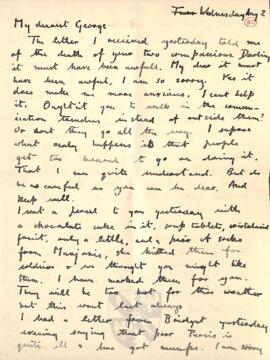 Wednesday Aug 2
My dearest George
The letter I received yesterday told me
of the death of your two companions. Darling
it must have been awful. My dear it must
have been awful. I am so sorry. Yes it
does make me more anxious. I cant help
it. Oughtn't you to walk in the commun-
ication trenches instead of outside them?
Or dont they go all the way. I suppose
what really happens is that people
get too to go on doing it.
That I can quite understand. But do
be as careful as you can be dear. And
keep well.
I sent a parcel to you yesterday with
a chocolate cake in it, soup tablets,
fruit, only a little, and a pair of socks
from Marjorie, she knitted them for
soldiers & we thought you might like
them. I have marked them for you.
They will be too hot for this weather
but this wont last always.
I had a letter from Bridget yesterday
evening saying that poor is
quite ill & has got mumps. I am